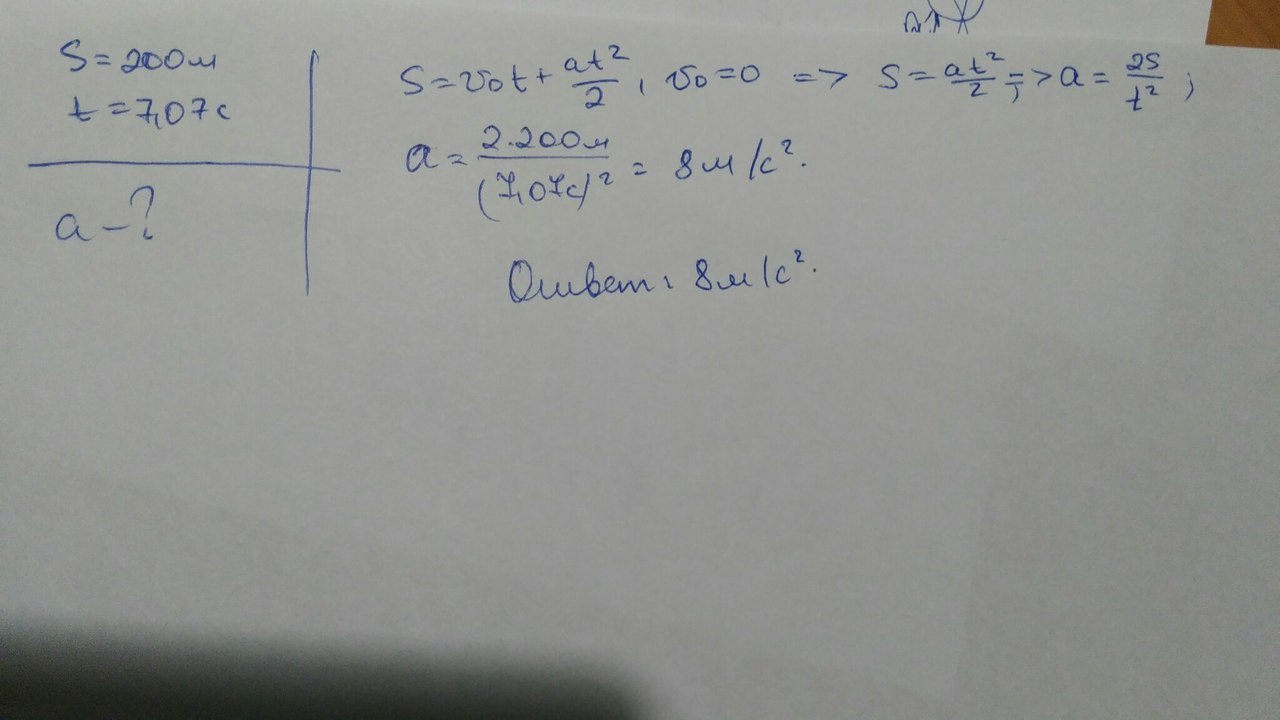 S = 200м
t = 7,07с
a - ?
S = υ₀t + at²/2, υ₀ = 0 => S = at²/2 => a = 2S/t²;
a = 2·200м/(7,07с)² = 8м/с².
Ответ: 8м/с².